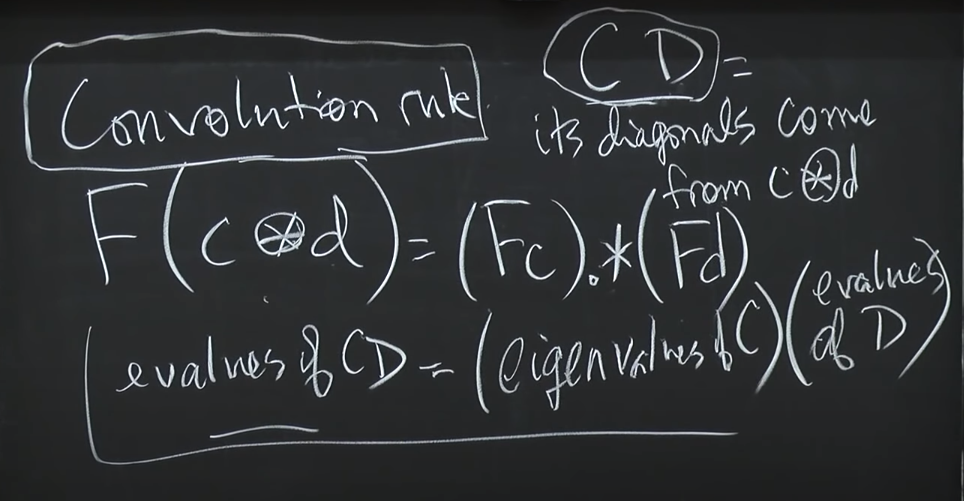 Convolution rule
CD =
its diagonals come
from c ⊛ d
F(c ⊛ d) = (Fc) .* (Fd)
evalues of CD = (eigenvalues of C)(evalues of D)